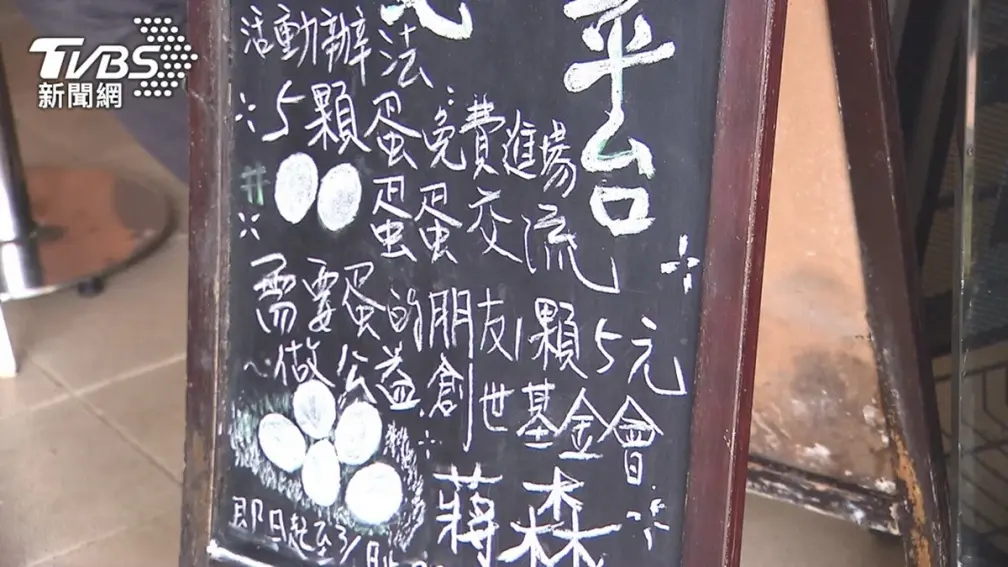 TVBS
新聞網
平台
活動辦法
5顆蛋免費進場
蛋蛋交流
需要蛋的朋友1顆5元
~做公益創世基金會
蔣森
即日起至3/